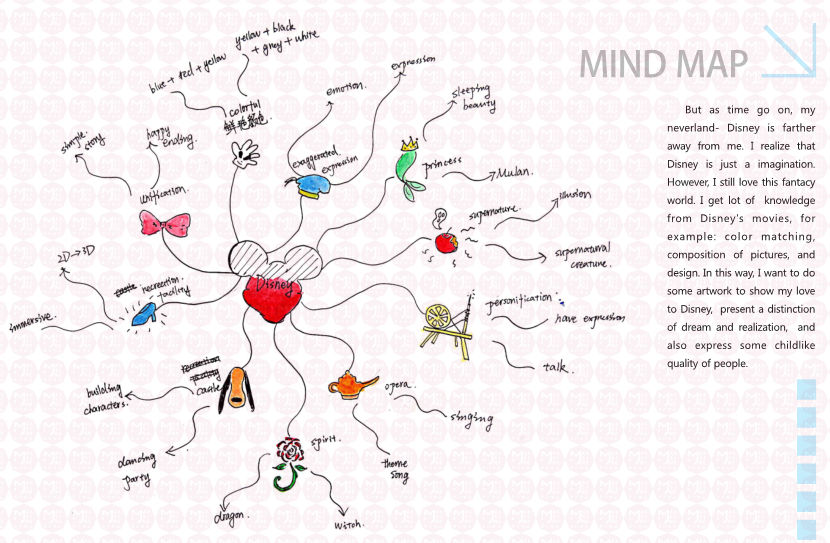 MIND MAP
But as time go on, my
neverland- Disney is farther
away from me. I realize that
Disney is just a imagination.
However, I still love this fantacy
world. I get lot of knowledge
from Disney's movies, for
example: color matching,
composition of pictures, and
design. In this way, I want to do
some artwork to show my love
to Disney, present a distinction
of dream and realization, and
also express some childlike
quality of people.
Disney
blue + red + yellow
yellow + black
+ grey + white
colorful
emotion.
expression
exaggerated
expression
sleeping
beauty
princess
Mulan.
supernature.
illusion
supernatural
creature.
GO
personification.
have expression
talk.
opera.
singing
theme
song
spirit.
dragon.
witch.
castle
building
characters.
dancing
party
recreation
facility
2D→3D
immersive.
unification.
simple
story
happy
ending.